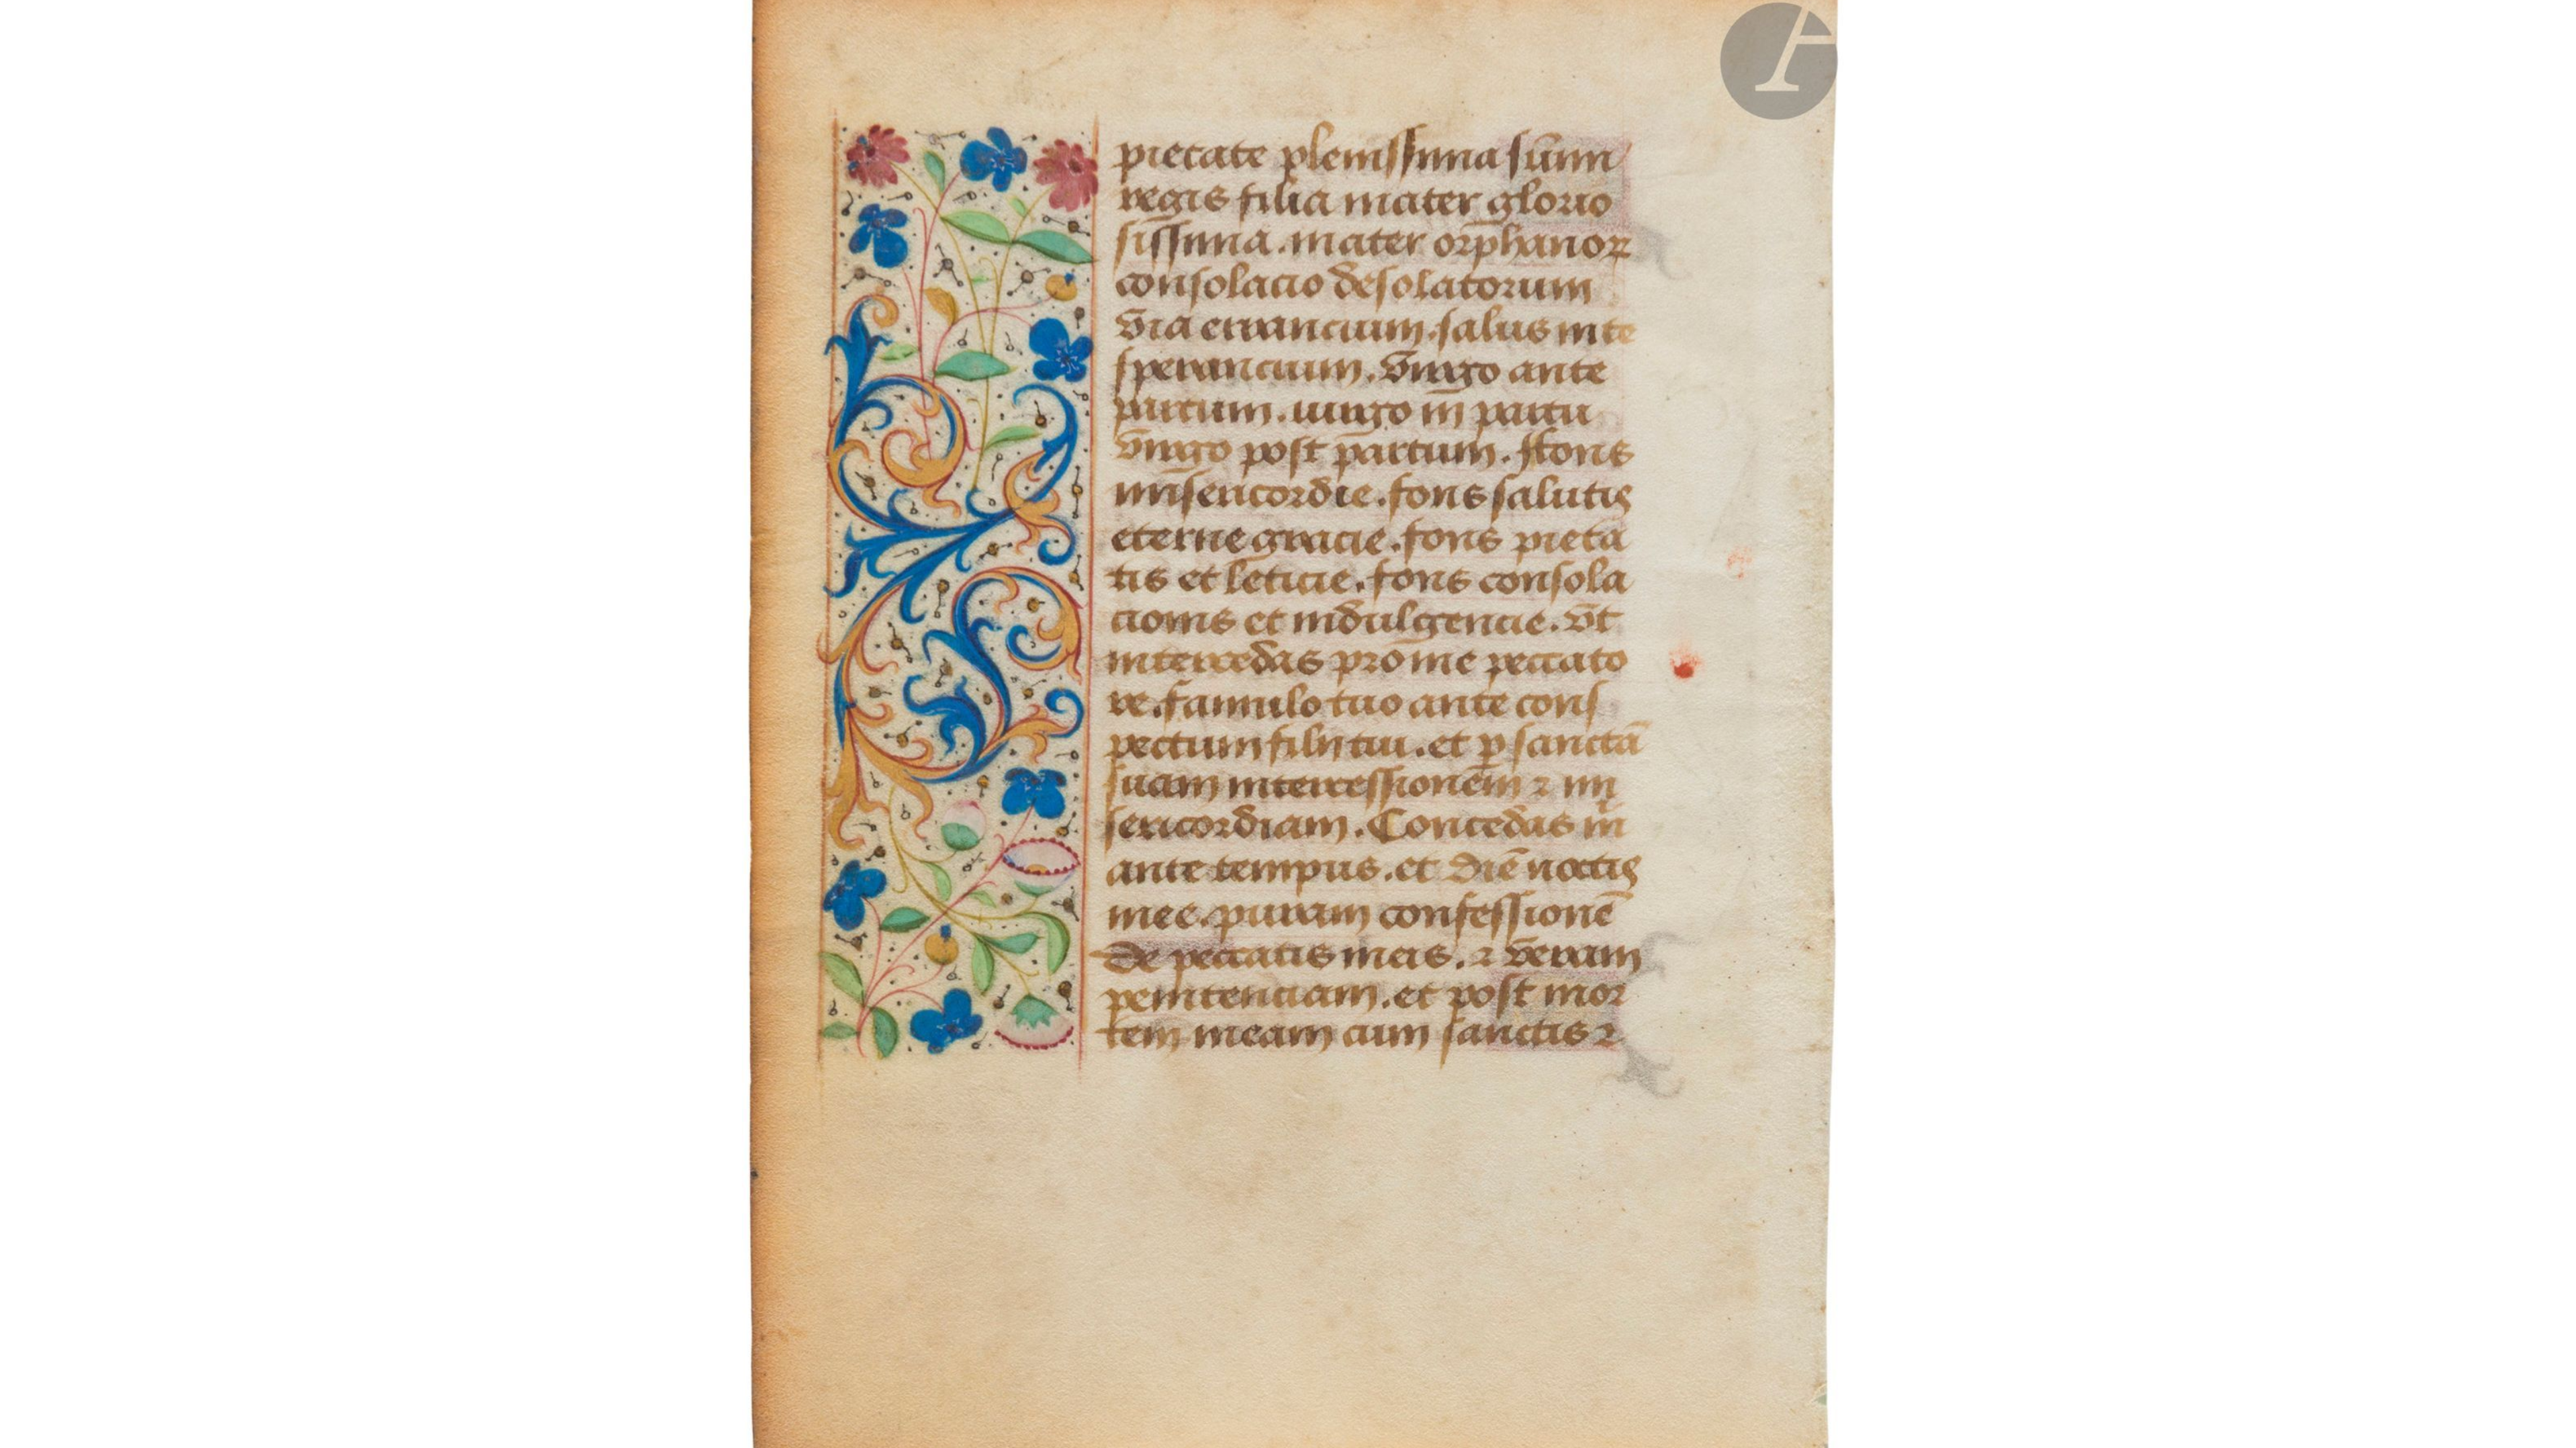 pietate plenissima sūmi
regis filia mater glorio
sissima. mater orphanoꝝ
consolacio desolatorum
via errancium. salus in te
sperancium. virgo ante
partum. uirgo in partu
virgo post partum. ffons
misericordie. fons salutis
eterne gracie. fons pieta
tis et leticie. fons consola
cionis et indulgencie. vt
intercedas pro me peccato
re. famulo tuo ante cons
pectum filij tui. et ꝑ sanctā
suam intercessionem ⁊ mi
sericordiam. Concedas m̄
ante tempus. et diē noctis
mee. puram confessionē
de peccatis meis. ⁊ veram
penitenciam. et post mor
tem meam cum sanctis ⁊